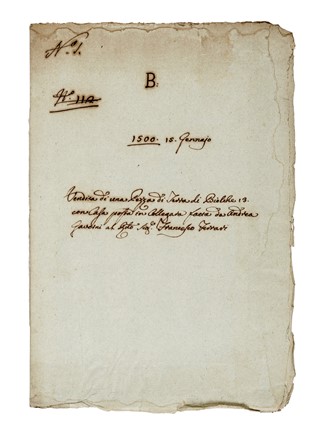 N.º 1.
N.º 112
B.
1500. 15. Gennajo
Vendita di una Pezza di Terra di Biolche 13
con Casa posta in Collegara fatta da Andrea
al Sig.r Francesco Ferrari